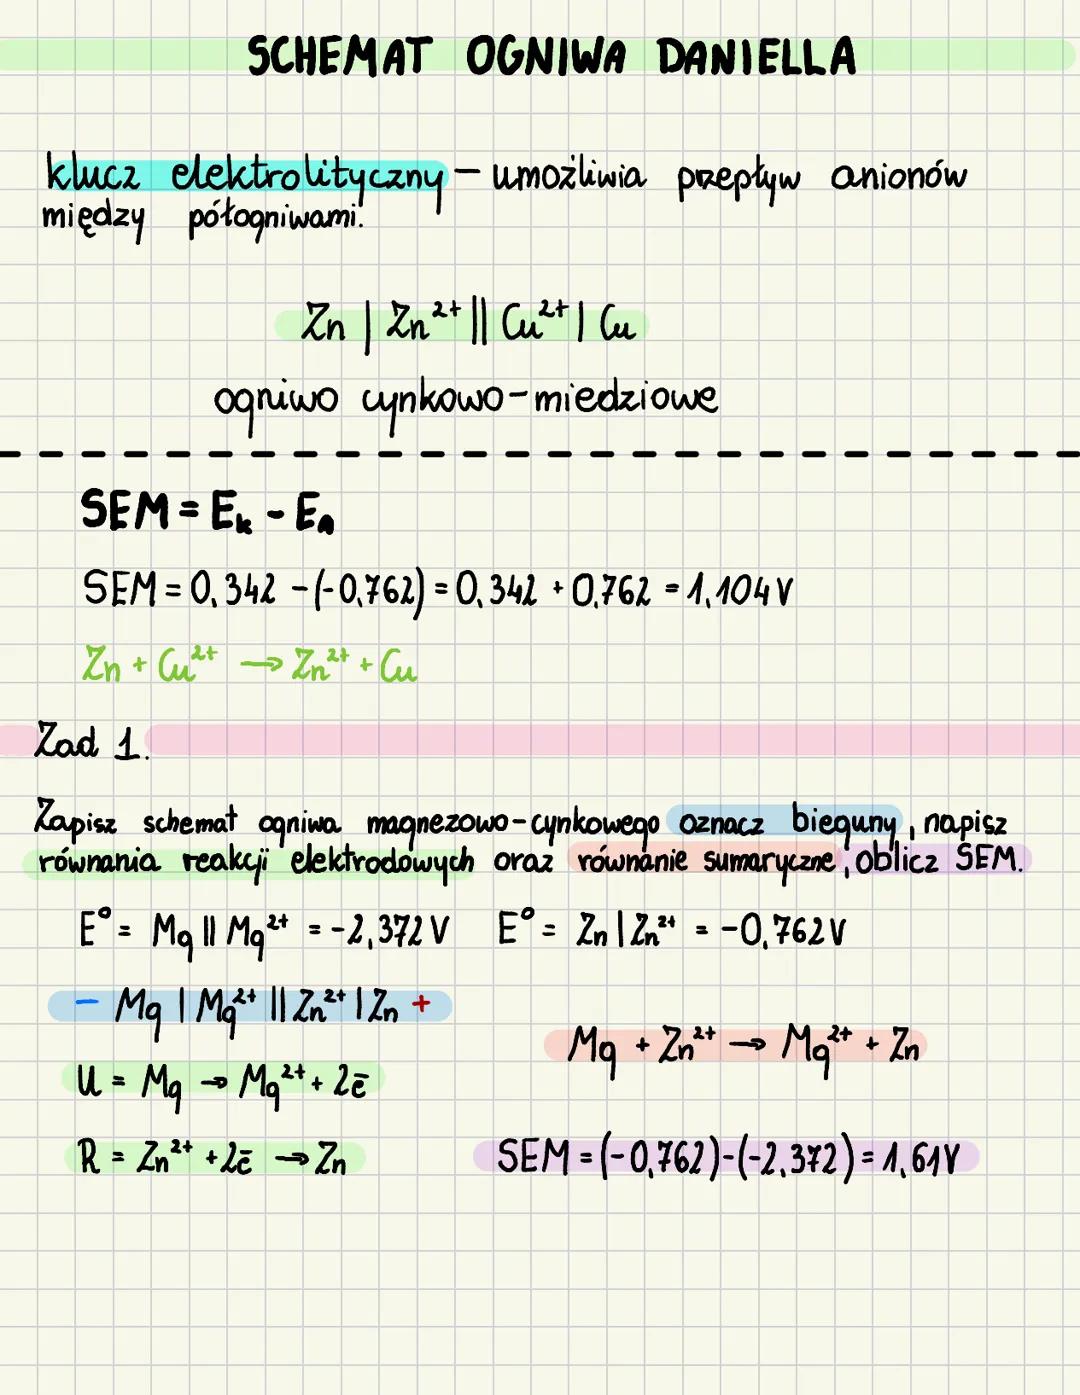 SCHEMAT OGNIWA DANIELLA
klucz elektrolityczny – umożliwia przepływ anionów
między półogniwami.
Zn | Zn²⁺ || Cu²⁺ | Cu
ogniwo cynkowo-miedziowe
SEM = Eₖ - Eₐ
SEM = 0,342 - (-0,762) = 0,342 + 0,762 = 1,104 V
Zn + Cu²⁺ → Zn²⁺ + Cu
Zad 1.
Zapisz schemat ogniwa magnezowo-cynkowego oznacz bieguny, napisz
równania reakcji elektrodowych oraz równanie sumaryczne, oblicz SEM.
E° = Mg || Mg²⁺ = -2,372 V E° = Zn | Zn²⁺ = -0,762 V
- Mg | Mg²⁺ || Zn²⁺ | Zn +
Mg + Zn²⁺ → Mg²⁺ + Zn
U = Mg → Mg²⁺ + 2ē
R = Zn²⁺ + 2ē → Zn SEM = (-0,762)-(-2,372) = 1,61 V